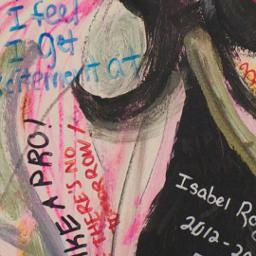 I feel
I get
excitement at
LIKE A PRO!
THERE'S NO
TOMORROW!
Isabel Ro
2012-20